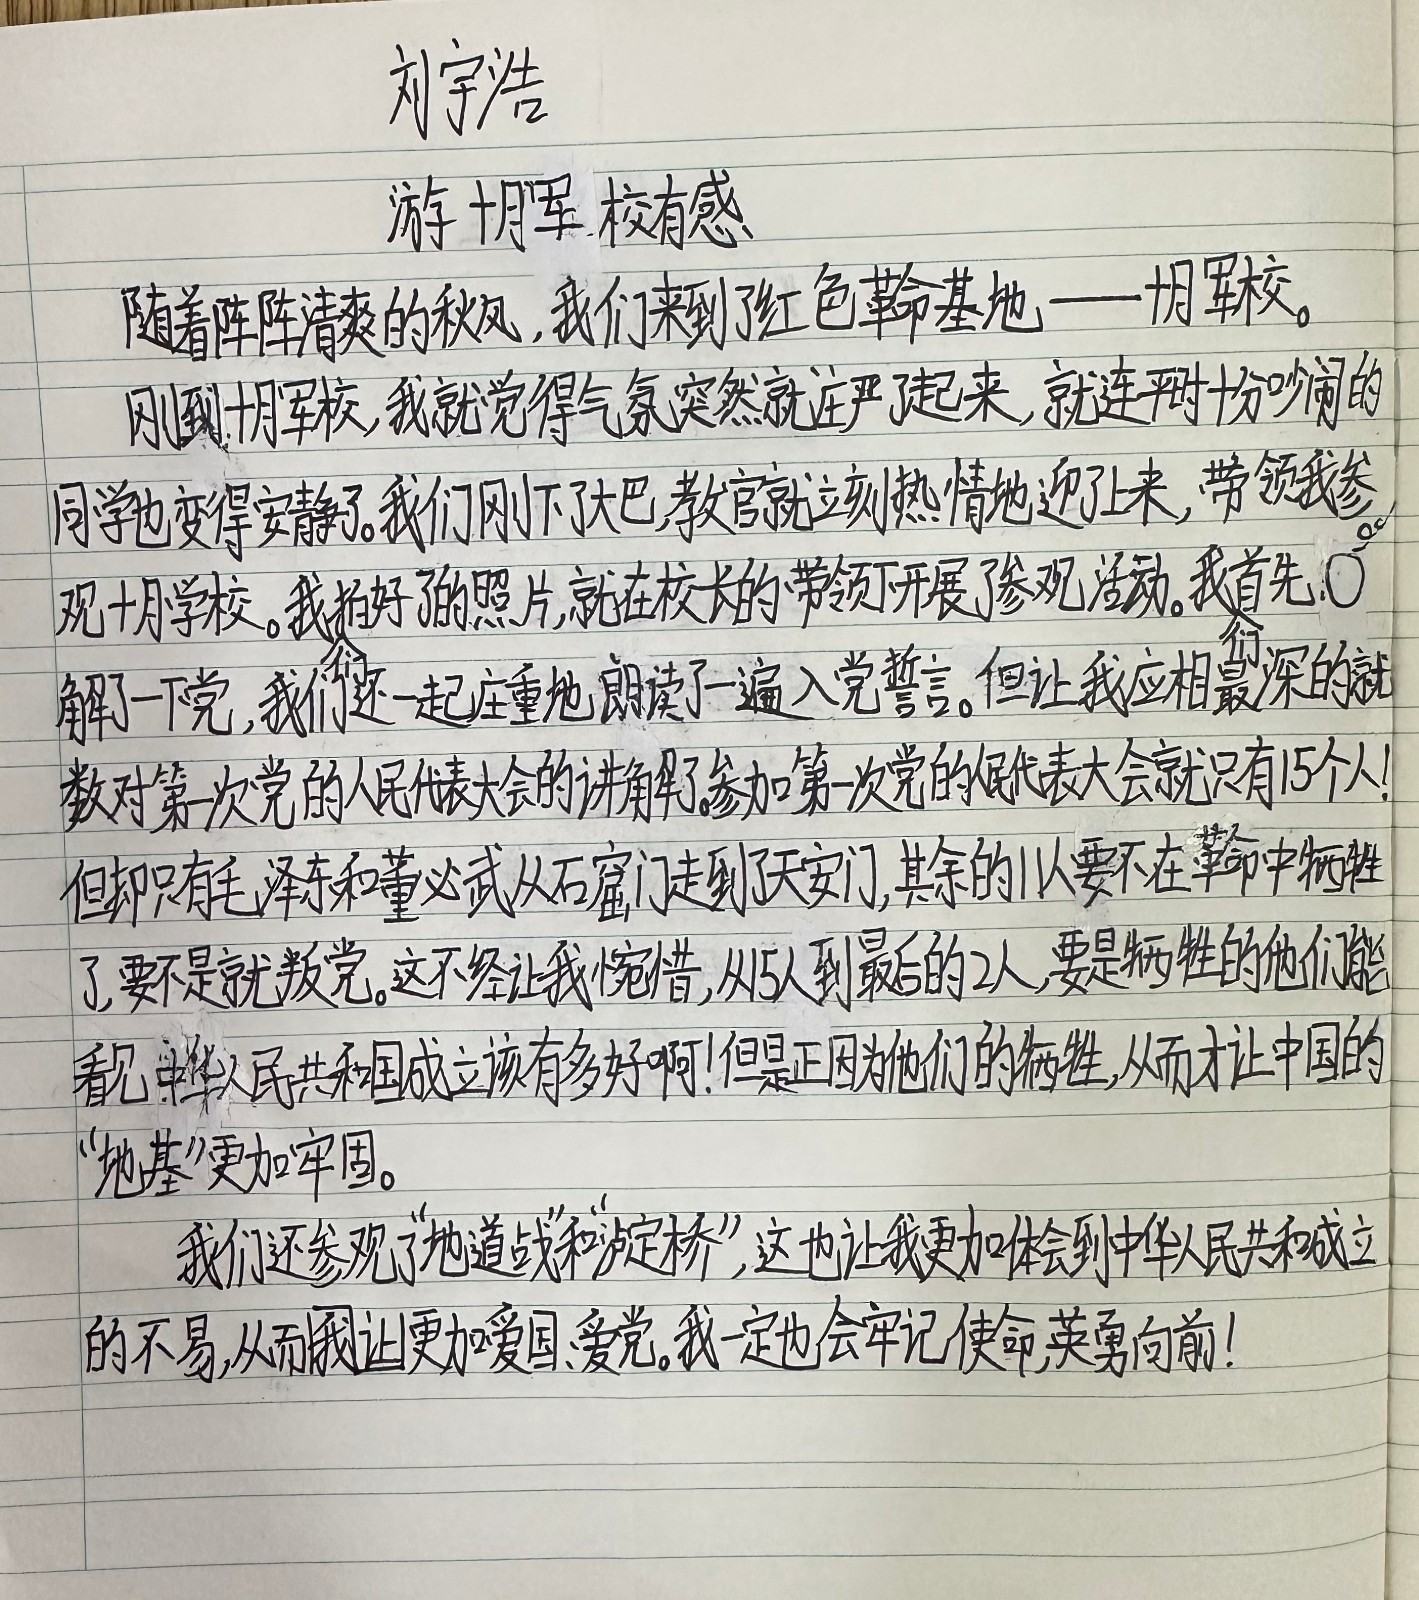 刘宇浩
游十月军校有感
随着阵阵清爽的秋风，我们来到了红色革命基地——十月军校。
刚到十月军校，我就觉得气氛突然就庄严了起来，就连平时十分吵闹的
同学也变得安静了。我们刚下了大巴，教官就立刻热情地迎了上来，带领我参
观十月学校。我们拍好了的照片，就在校长的带领下开展了参观活动。我们首先
解了一下党，我们还一起庄重地朗读了一遍入党誓言。但让我应相最深的就
数对第一次党的人民代表大会的讲解了。参加第一次党的人民代表大会就只有15个人！
但却只有毛泽东和董必武从石窟门走到了天安门，其余的11人要不在革命中牺牲
了，要不是就叛党。这不经让我惋惜，从15人到最后的2人，要是牺牲的他们能
看见中华人民共和国成立该有多好啊！但是正因为他们的牺牲，从而才让中国的
“地基”更加牢固。
我们还参观了“地道战”和“泸定桥”，这也让我更加体会到中华人民共和成立
的不易，从而我让更加爱国、爱党。我一定也会牢记使命，英勇向前！